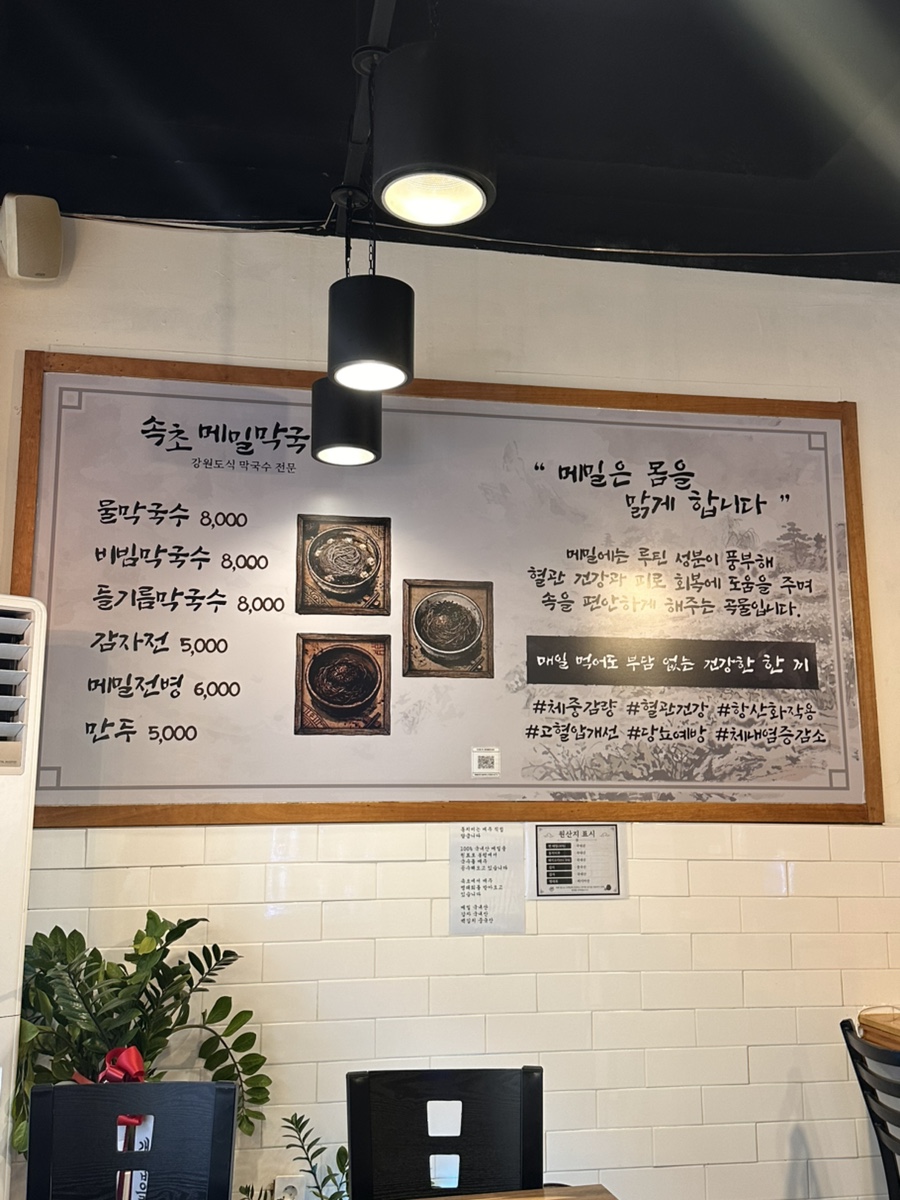 속초 메밀막국
강원도식 막국수 전문
물막국수 8,000
비빔막국수 8,000
들기름막국수 8,000
감자전 5,000
메밀전병 6,000
만두 5,000
“ 메밀은 몸을
맑게 합니다 ”
메밀에는 루틴 성분이 풍부해
혈관 건강과 피로 회복에 도움을 주며
속을 편안하게 해주는 곡물입니다.
매일 먹어도 부담 없는 건강한 한 끼
#체중감량 #혈관건강 #항산화작용
#고혈압개선 #당뇨예방 #체내염증감소
100% 국내산 메밀을
있습니다
메밀 국내산
감자 국내산
원산지 표시